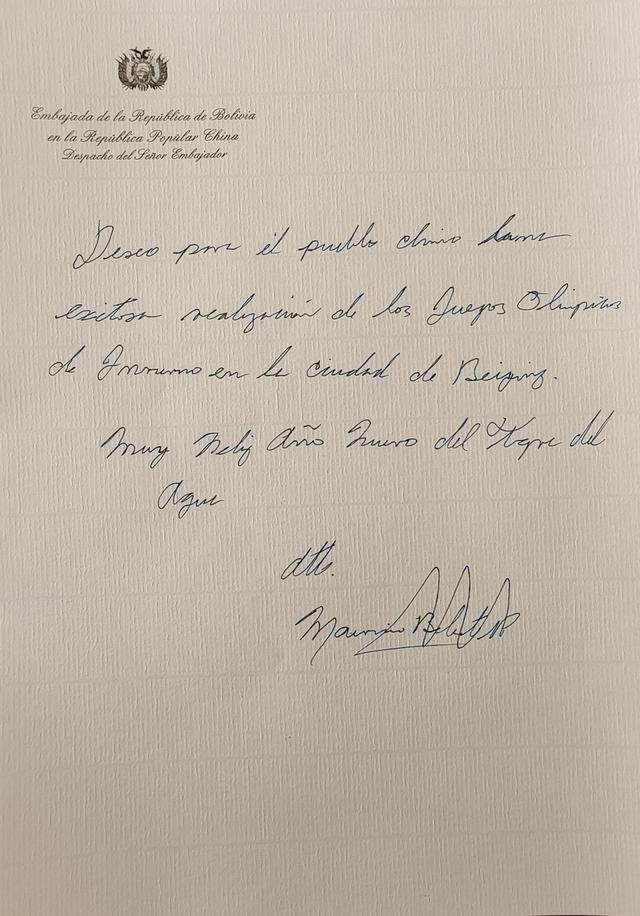 Embajada de la República de Bolivia
en la República Popular China
Despacho del Señor Embajador
Deseo para el pueblo chino
exitosa realización de los Juegos Olimpicos
de Invierno en la ciudad de Beiging.
Muy Feliz Año Nuevo del Tigre del
Agua
Att.
Mauricio